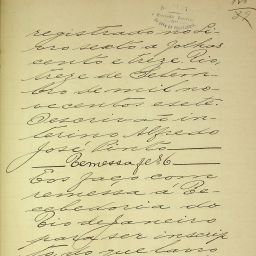 registrado no li-
vro sexto a folhas
cento e treze. Rio,
treze de Setem-
bro de mil no-
vecentos e sete.
O escrivão in-
terino Alfredo
José Pinto
Remessa
E os faço com
remessa á Re-
cebedoria do
Rio de Janeiro
para ser inscrip-
to, do que lavro